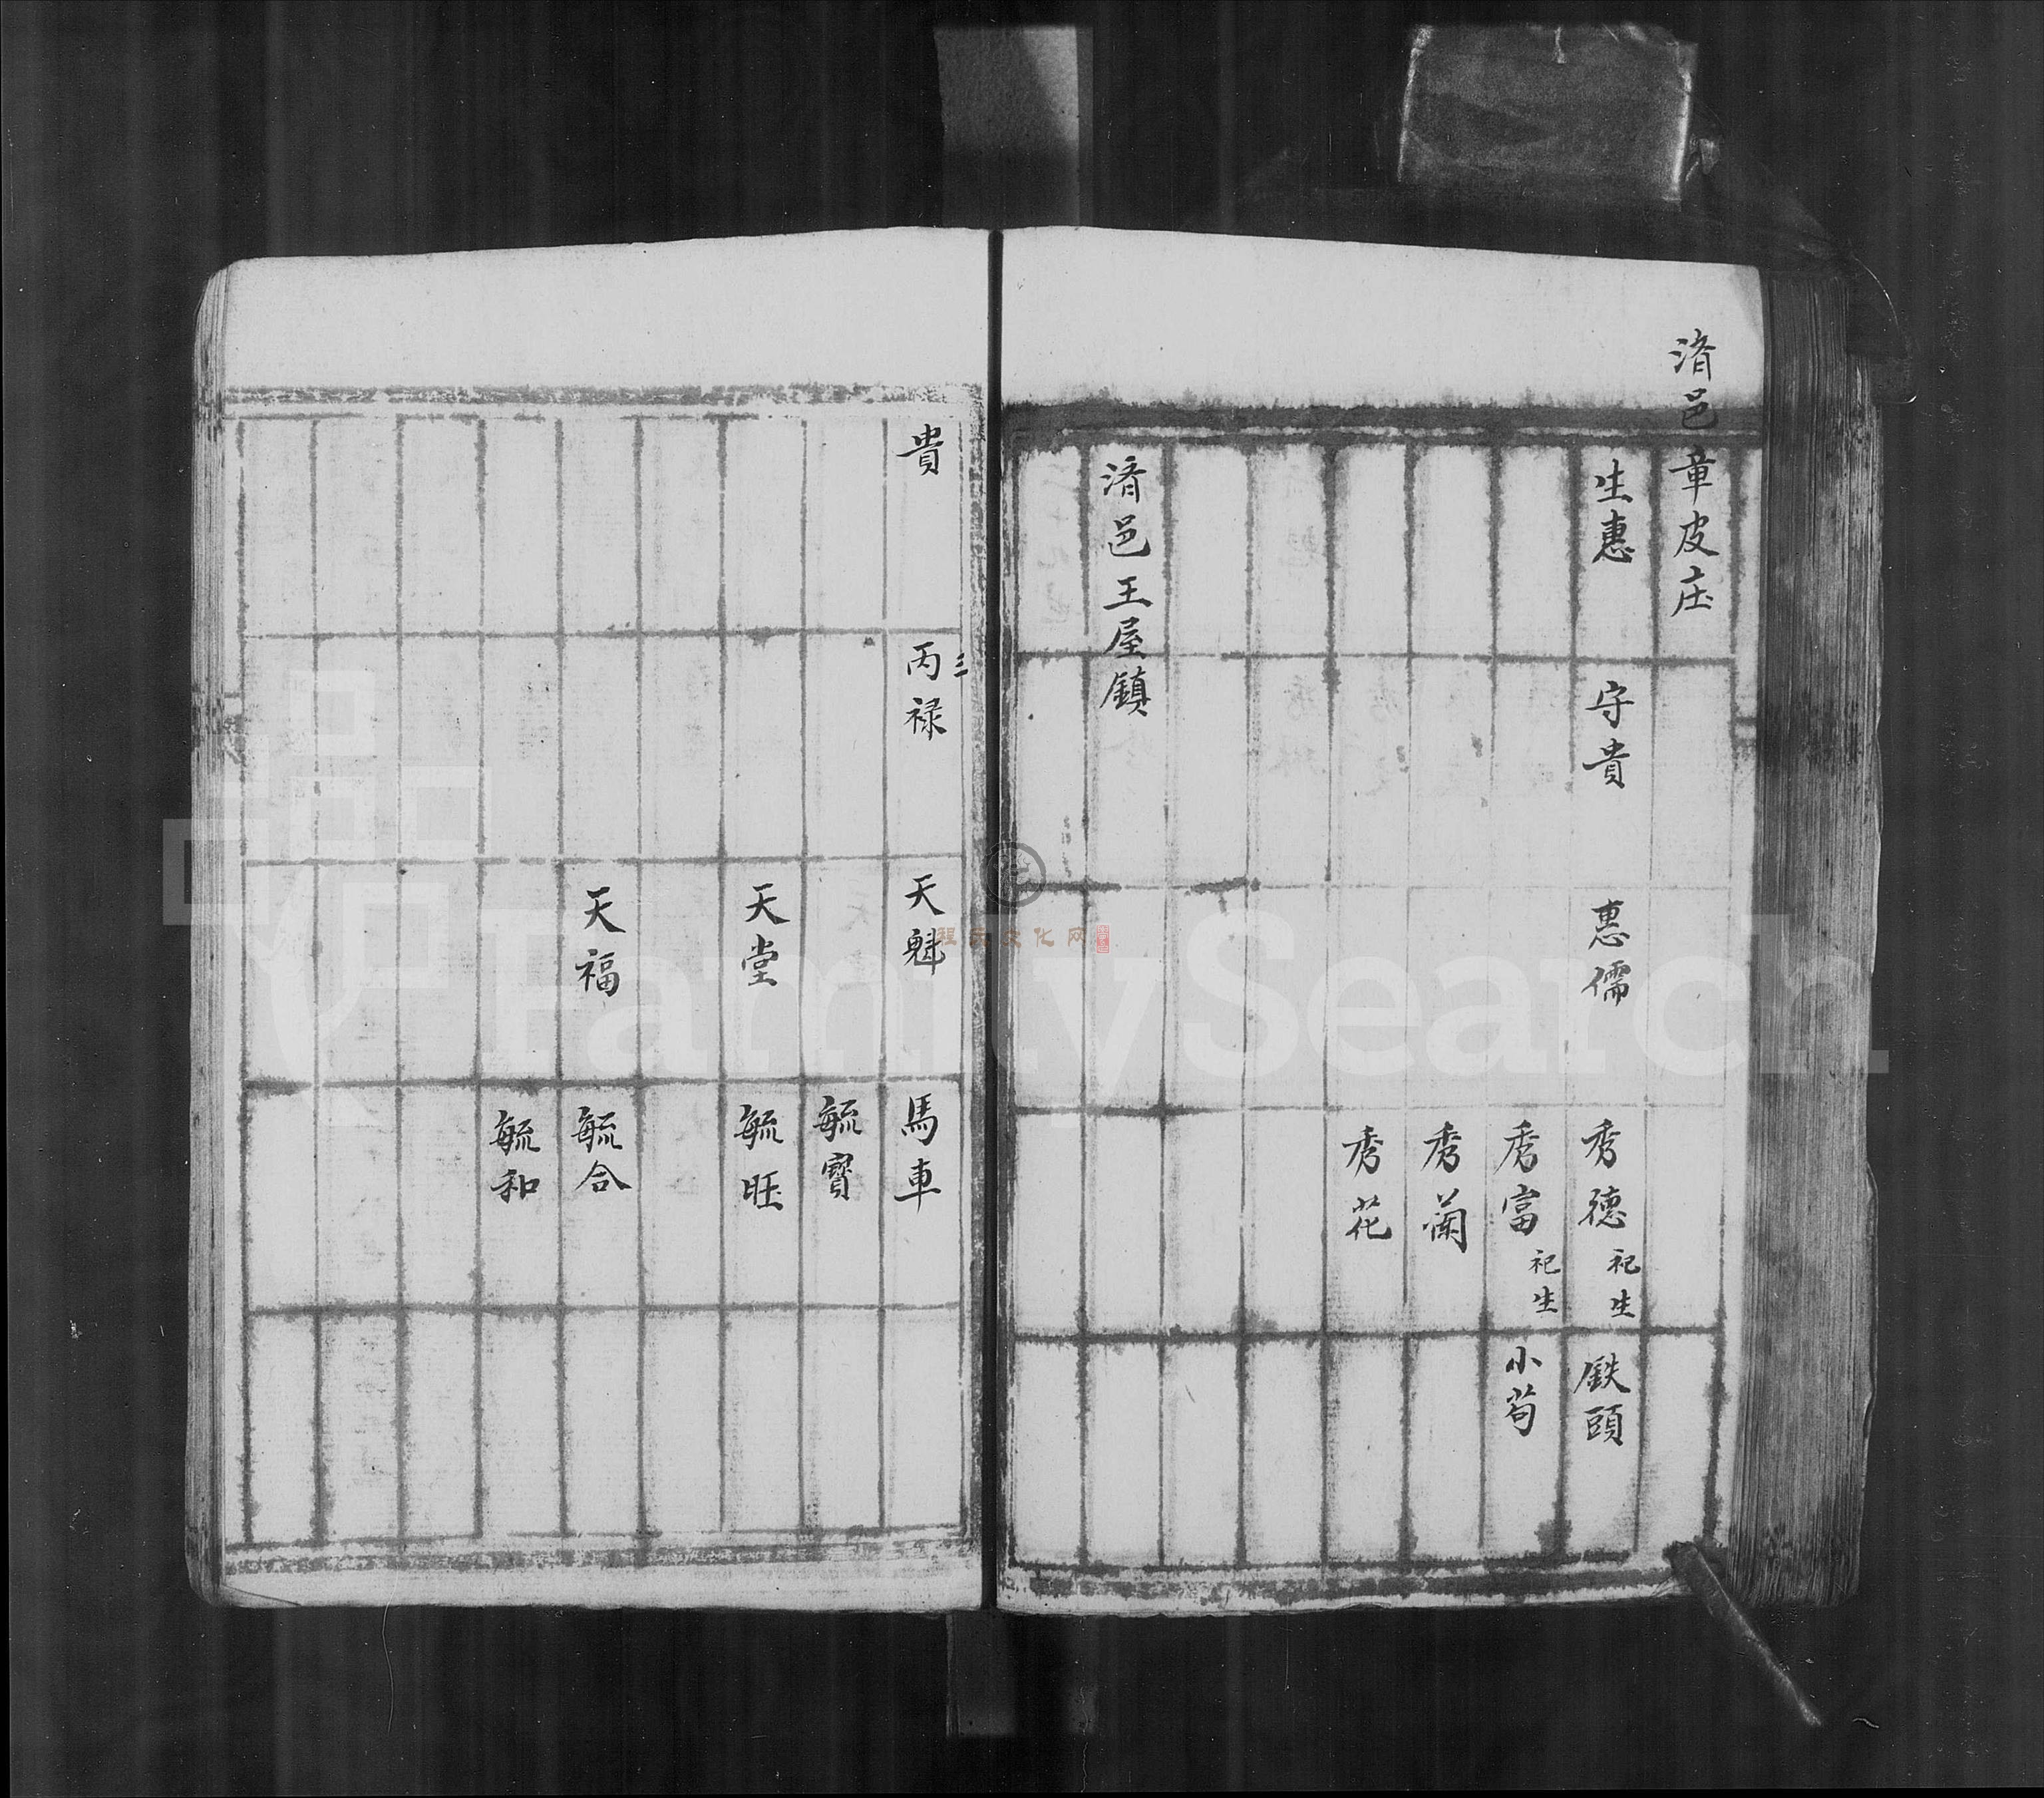 済邑章皮庄
生惠
守貴
惠儒
秀德 祀生
鉄頭
秀富 祀生
小苟
秀蘭
秀花
済邑王屋鎮
貴
三
丙禄
天魁
馬車
毓寶
天堂
毓旺
天福
毓合
毓和
程氏文化网
FamilySearch